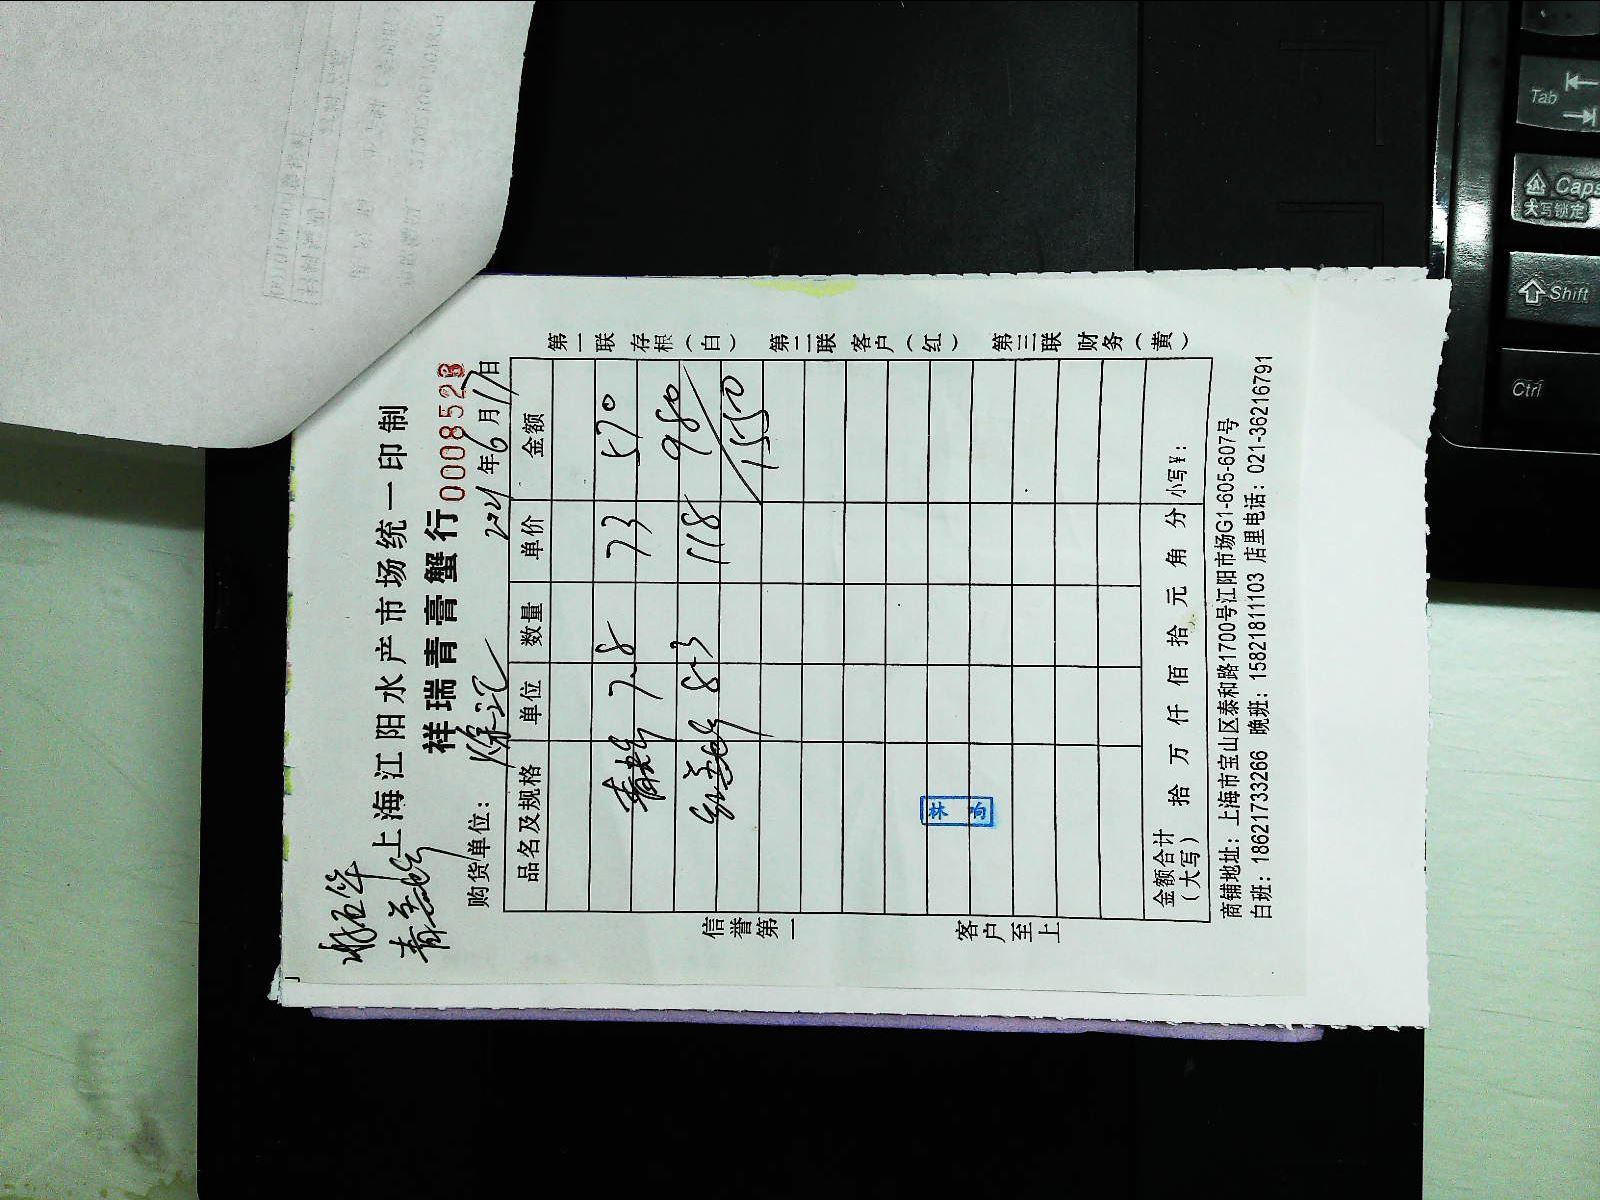 上海江阳水产市场统一印制
祥瑞青膏蟹行 0008523
购货单位： 徐汇 2021年6月17日
品名及规格 单位 数量 单价 金额
7.8 73 570
8.3 118 980
1550
林
金额合计（大写） 拾 万 仟 佰 拾 元 角 分 小写¥：
商铺地址：上海市宝山区泰和路1700号江阳市场G1-605-607号
白班：18621733266 晚班：15821811103 店里电话：021-36216791
信誉第一 客户至上
第一联 存根（白） 第二联 客户（红） 第三联 财务（黄）
Tab
Caps
大写锁定
Shift
Ctrl